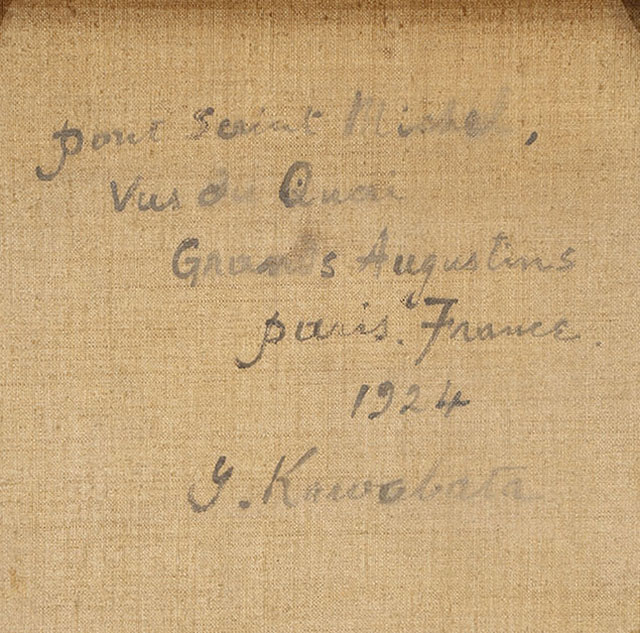 pont saint Michel,
Vus du Quai
Grands Augustins
paris. France.
1924
Y. Kawabata